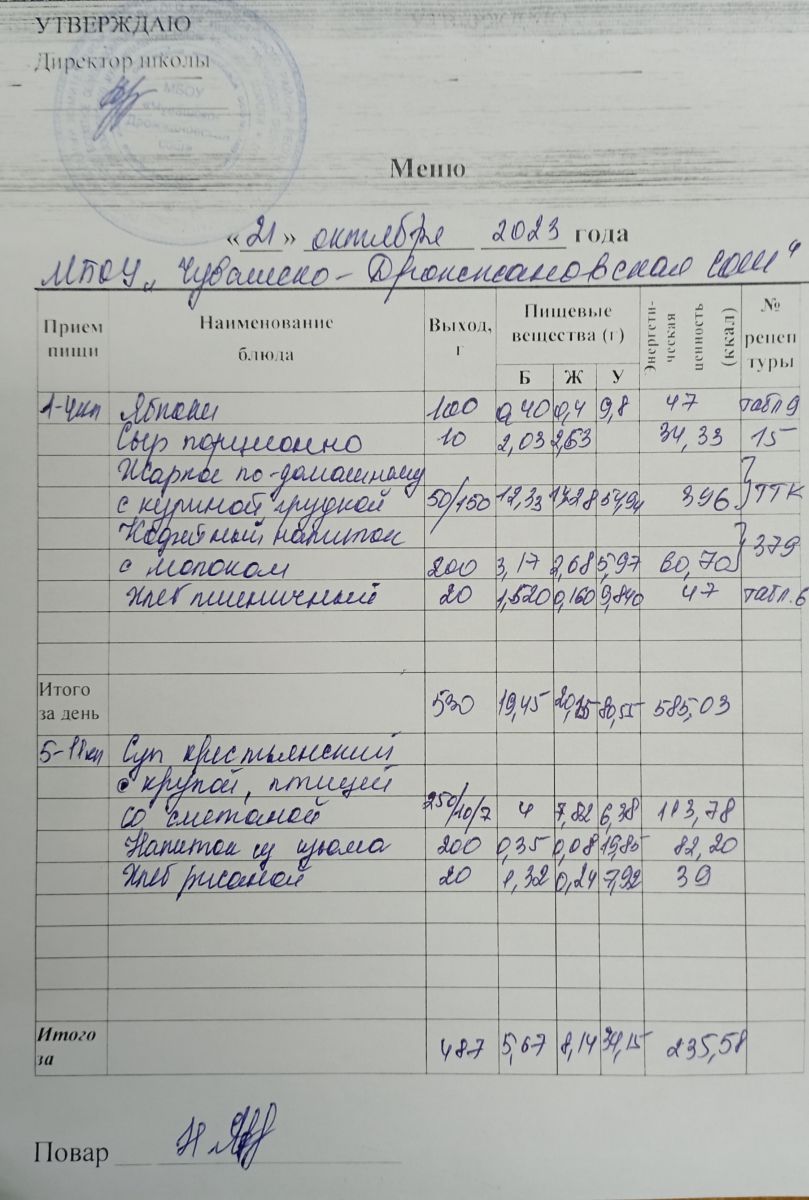 УТВЕРЖДАЮ
Директор школы
МБОУ
Меню
«21» октября 2023 года
МБОУ „Чувашско-Дрожжановская сош"
Прием пищи Наименование блюда Выход, г Пищевые вещества (г) Энергети-ческая ценность (ккал) № рецептуры
Б Ж У
1-4кл Яблоки 100 0,40 0,4 9,8 47 табл 9
Сыр порционно 10 2,03 2,63 34,33 15
Жаркое по-домашнему
с куриной грудкой 50/150 12,33 396 ТТК
Кофейный напиток
с молоком 200 3,17 2,68 5,97 60,70 379
Хлеб пшеничный 20 1,520 0,160 9,840 47 табл. 6
Итого
за день 530 19,45 80,55 585,03
5-11кл Суп крестьянский
с крупой, птицей
со сметаной 250/10/7 4 7,82 6,38 113,78
Напиток из изюма 200 0,35 0,08 19,85 82,20
Хлеб ржаной 20 1,32 0,24 7,92 39
Итого
за 487 5,67 8,14 34,15 235,58
Повар